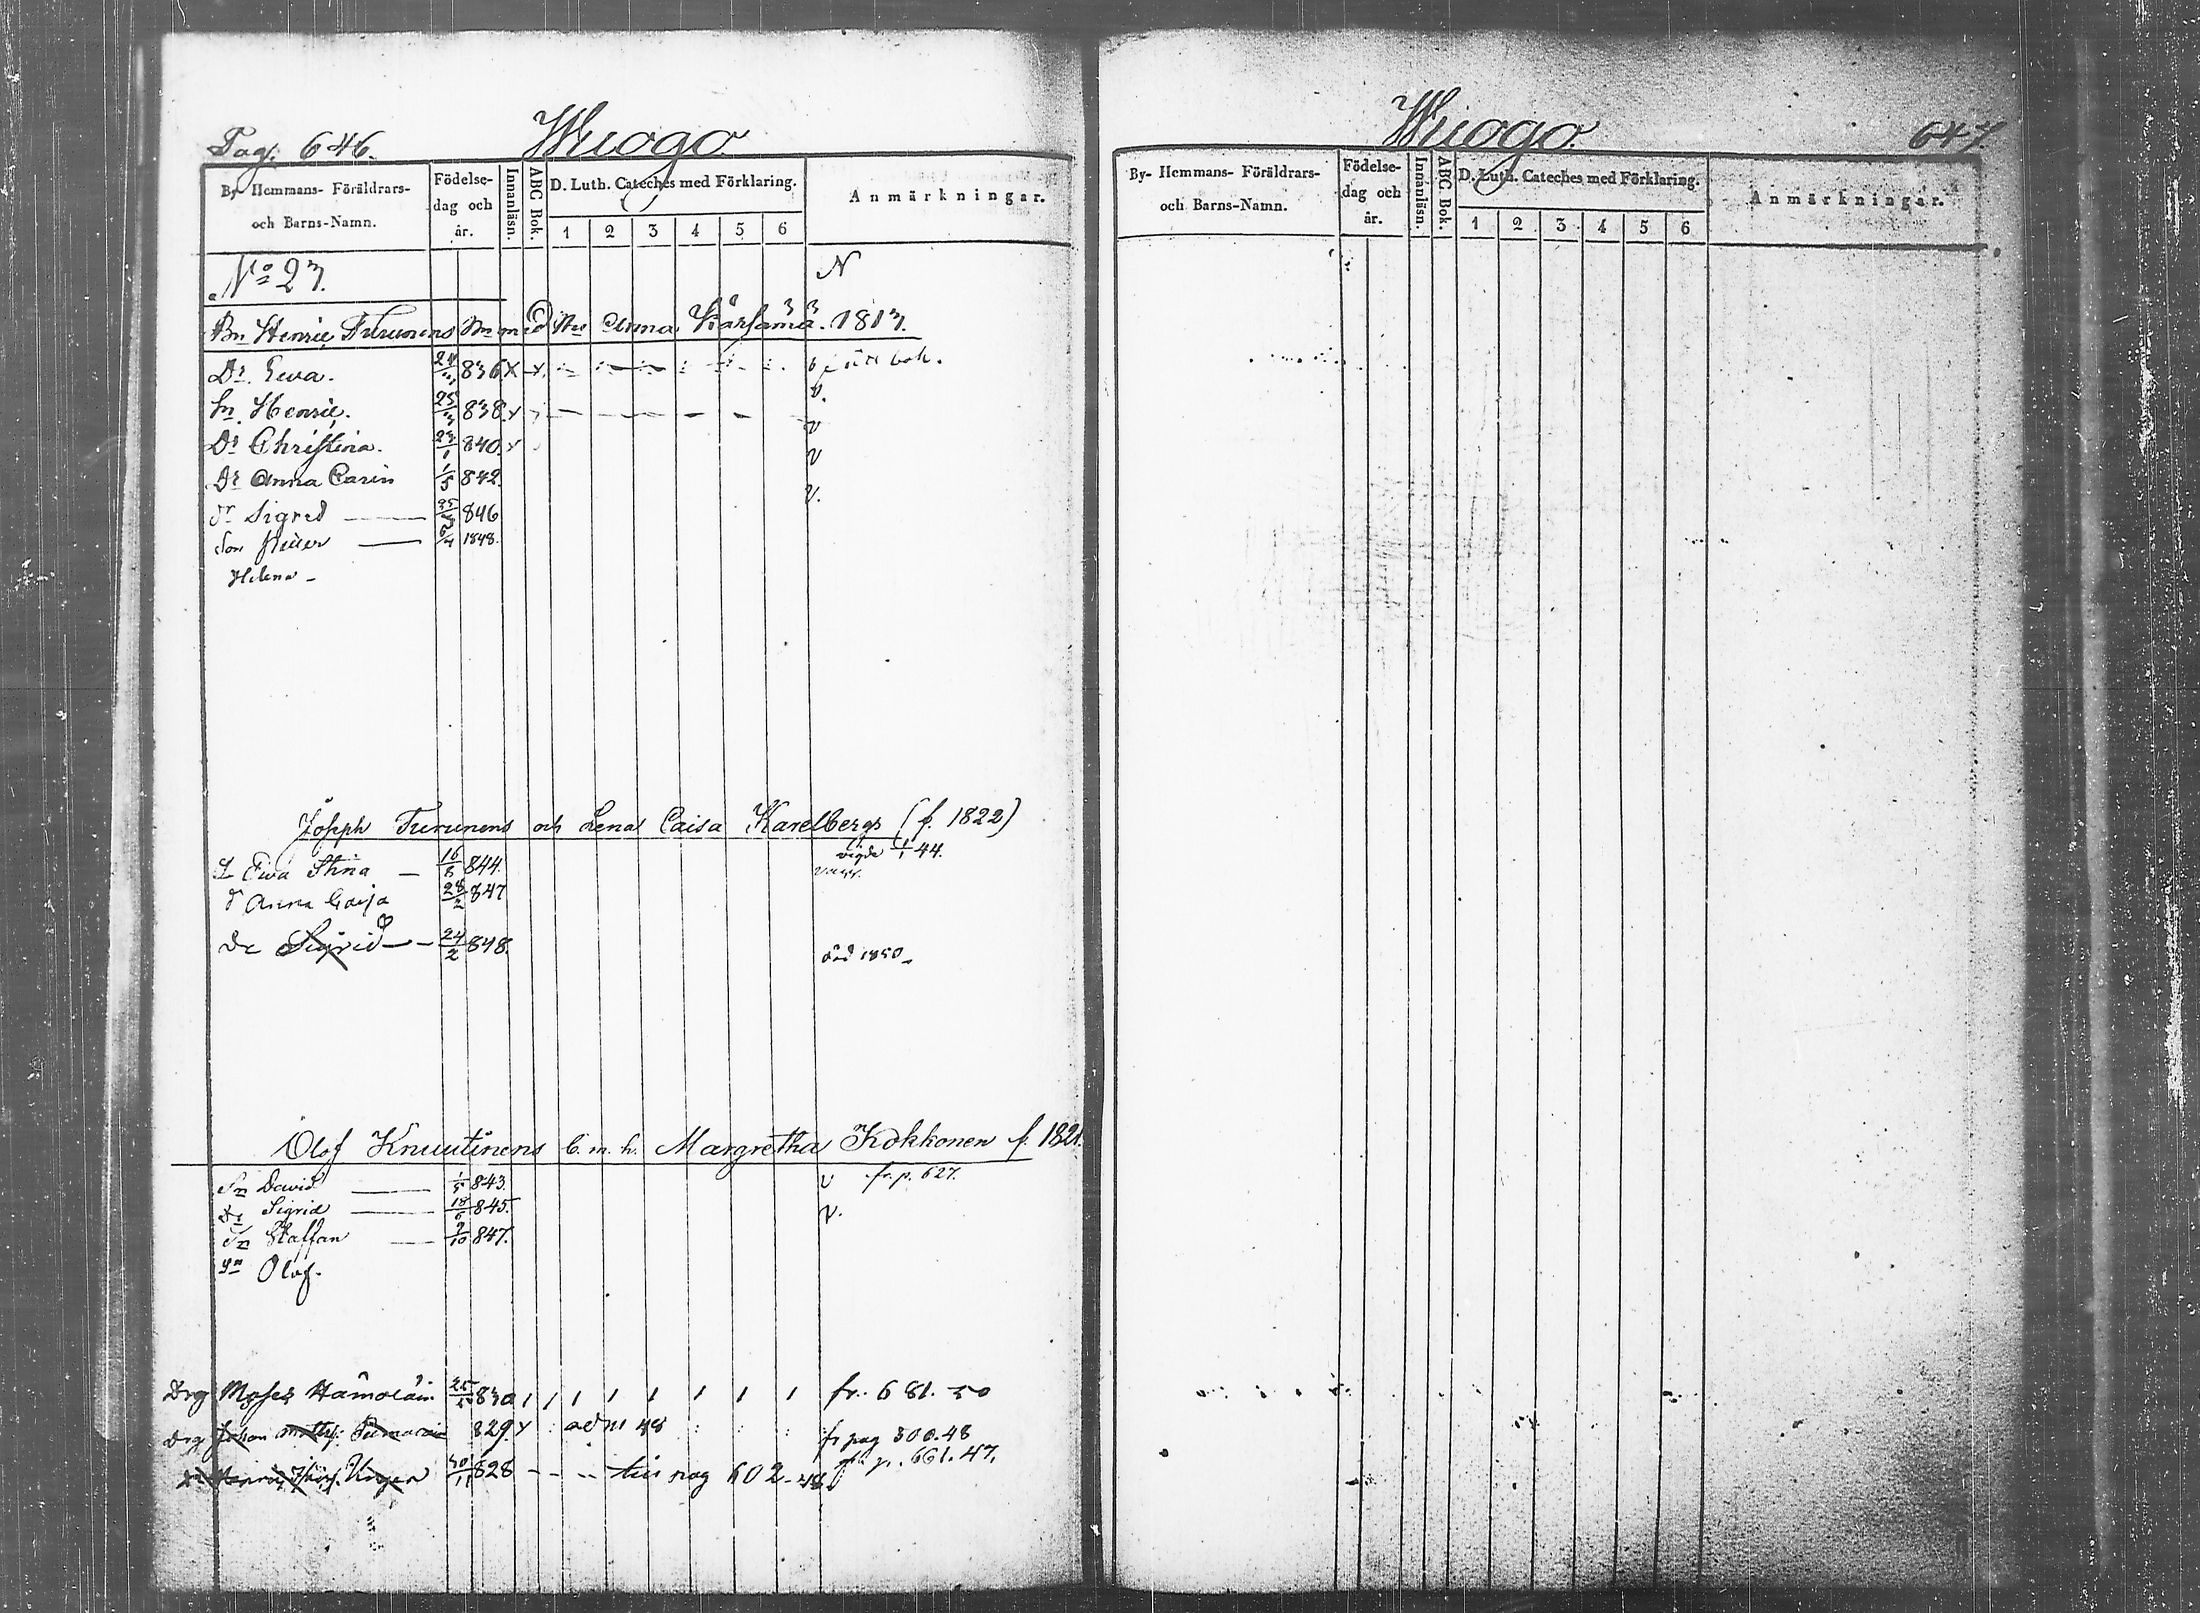 Pag. 646. Wuogo
By- Hemmans- Föräldrars- och Barns-Namn. Födelse- dag och år. Innanläsn. ABC Bok. D. Luth. Cateches med Förklaring. 1 2 3 4 5 6 Anmärkningar.
No 27. N
Bn Henric Turunens m Anna 1813.
Dr. Ewa. 836 x x bok.
Sn Henric. 25 838 x v.
Dr Christina. 840 x v
Dr Anna Carin 1/5 842. v
dr Sigred 846 v.
Son 1848.
Helena -
Joseph Turunens och Lena Caisa Karelbergs (f. 1822)
vigde 1/1 44.
Ewa Stina 844.
d Anna Caisa 28/2 847
Dr Sigrid 24/2 848. död 1850
Olof Knuutinens b. m. h. Margretha Kokkonen f. 1821.
Sn David 1/5 843. v fr. p. 627.
Dr Sigrid 18/6 845. v.
Sn Staffan 9/10 847.
Sn Olof.
Drg Moses 830 1 1 1 1 1 1 1 fr. 681. 50
Drg Johan 829. x adm 48 fr pag 300. 48
30/11 828 - - - till pag 602 - 48 fr. p. 661. 47.
Wuogo. 647.
By- Hemmans- Föräldrars- och Barns-Namn. Födelse- dag och år. Innanläsn. ABC Bok. D. Luth. Cateches med Förklaring. 1 2 3 4 5 6 Anmärkningar.